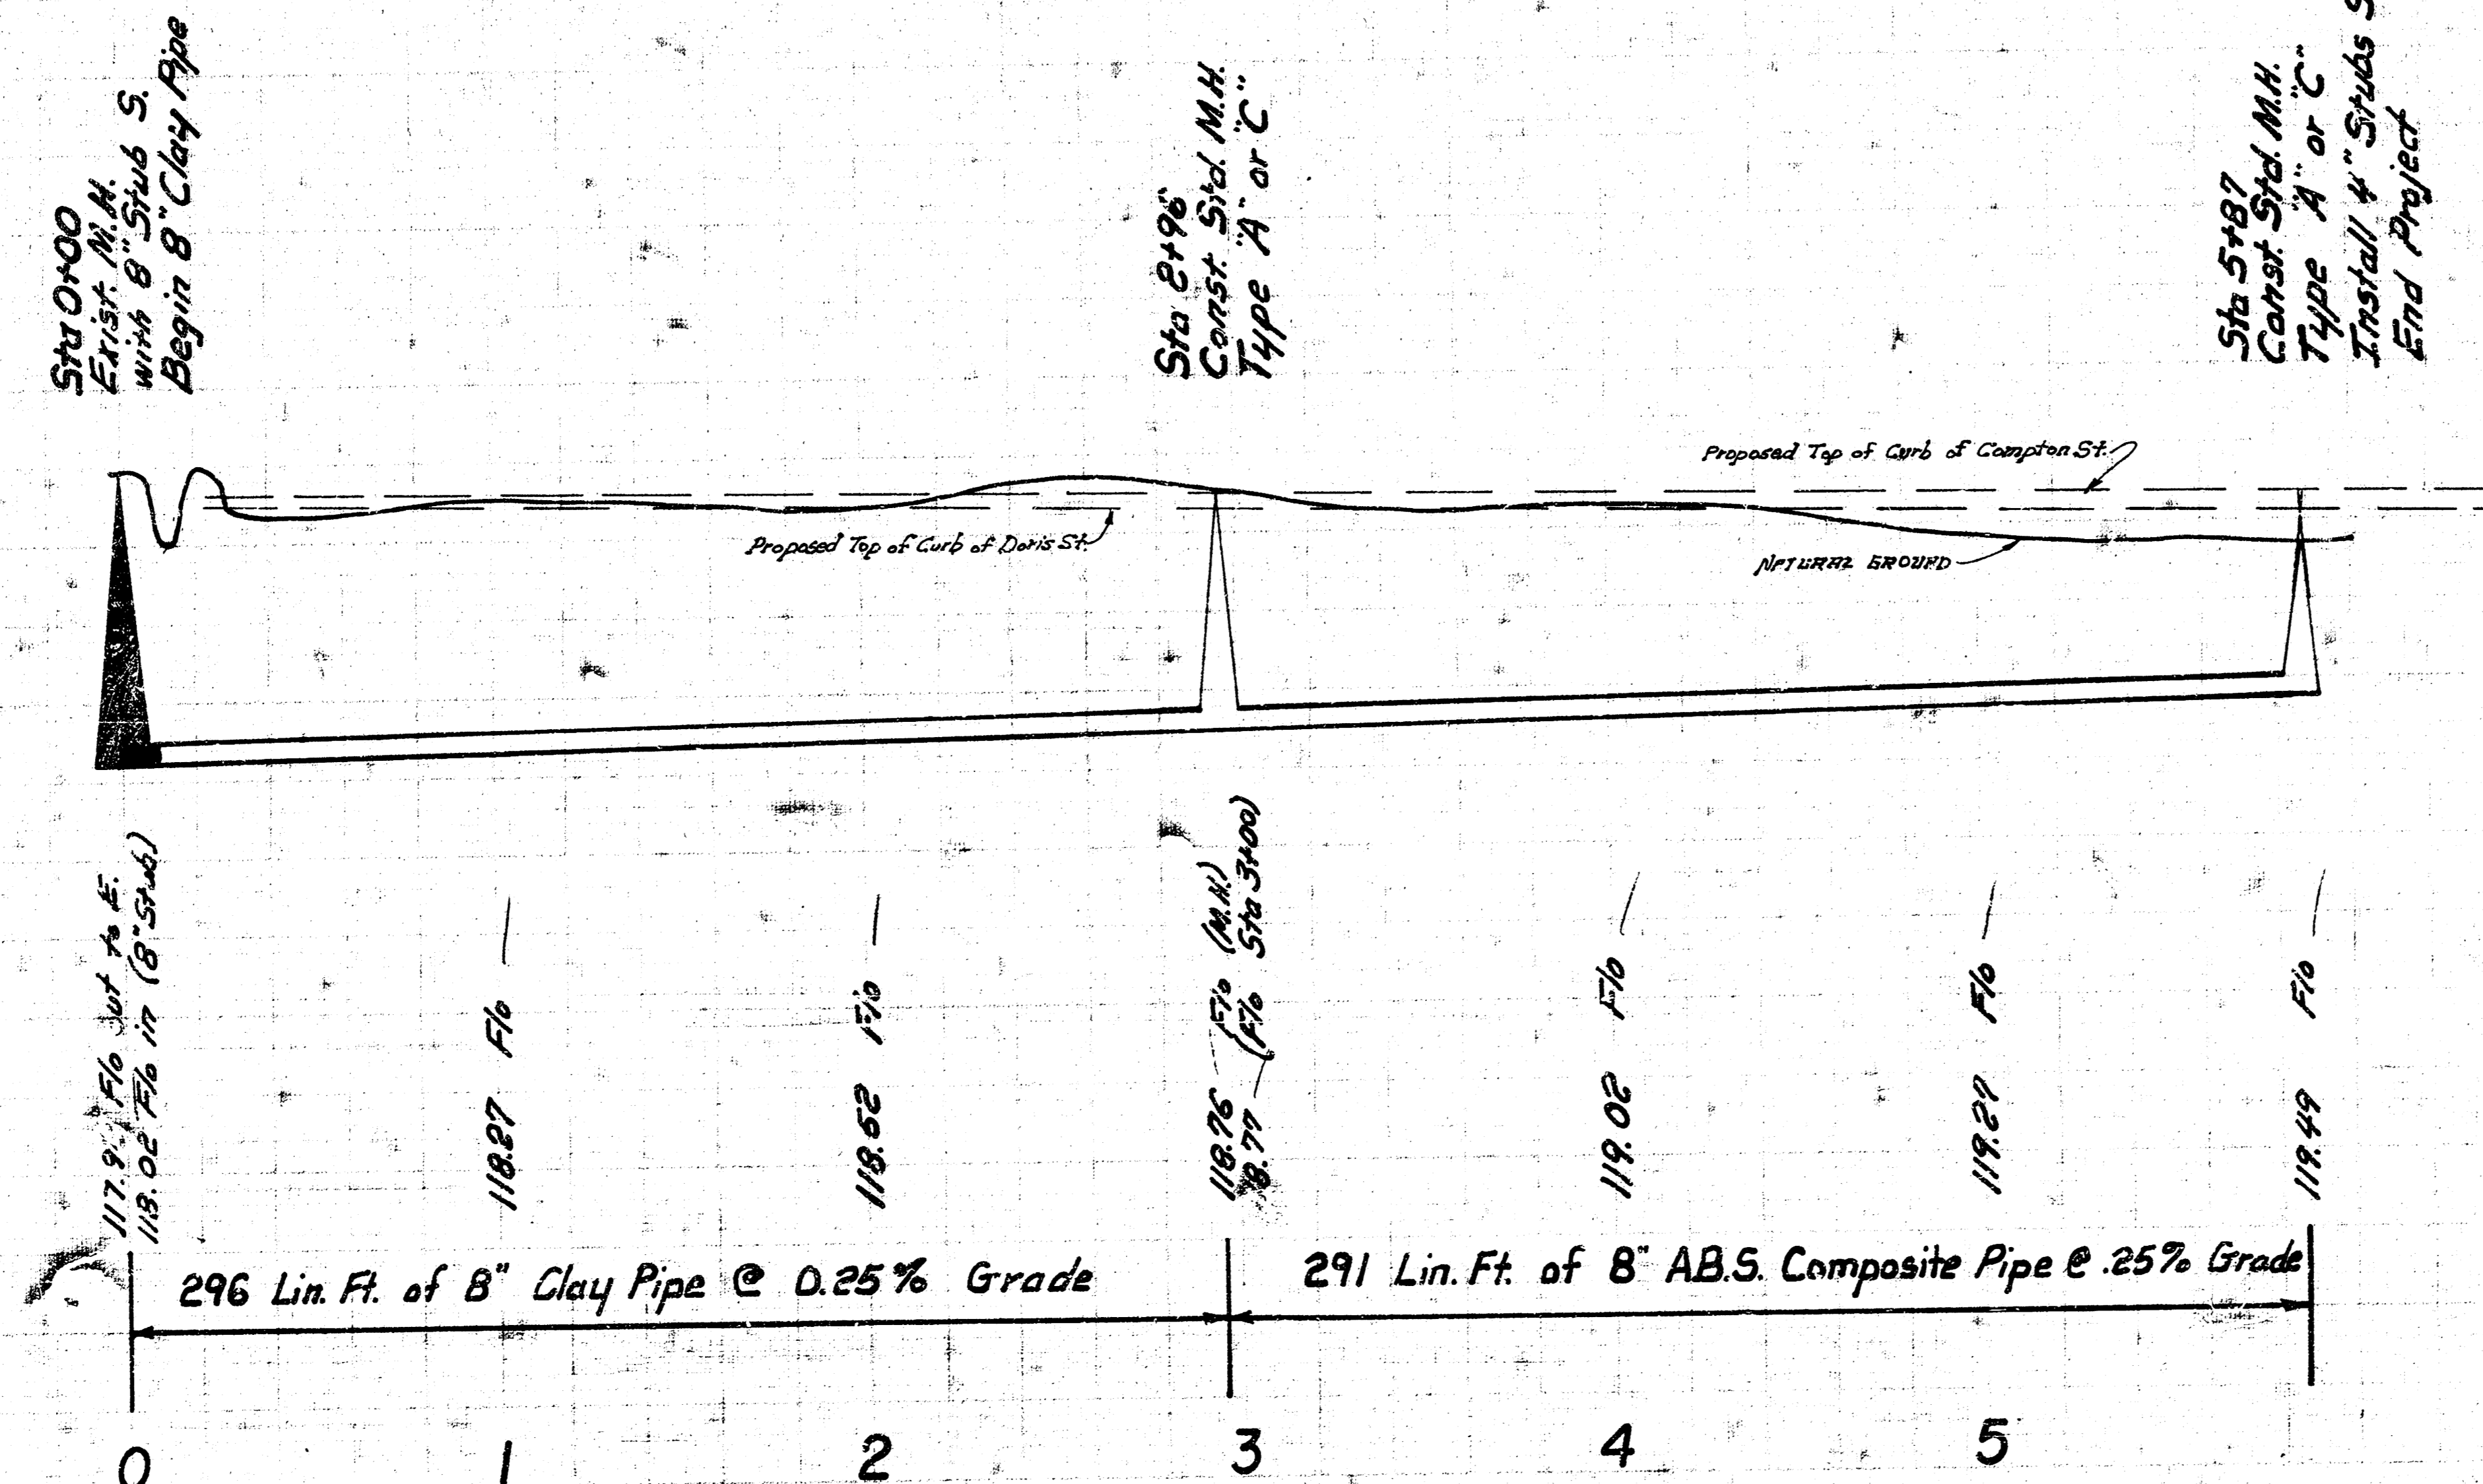 Sta 0+00
Exist. M.H.
with 8" Stub S.
Begin 8" Clay Pipe
Sta 2+96
Const. Std. M.H.
Type "A" or "C"
Sta 5+87
Const. Std. M.H.
Type "A" or "C"
Install 4" Stubs
End Project
Proposed Top of Curb of Compton St.
Proposed Top of Curb of Doris St.
NATURAL GROUND
F/o out to E.
118.02 F/o in (8" Stub)
118.27 F/o —
118.52 F/o —
118.76 F/o (M.H.)
18.77 (F/o Sta 3+00)
119.02 F/o —
119.27 F/o —
119.49 F/o —
296 Lin. Ft. of 8" Clay Pipe @ 0.25% Grade
291 Lin. Ft. of 8" A.B.S. Composite Pipe @ .25% Grade
0 1 2 3 4 5